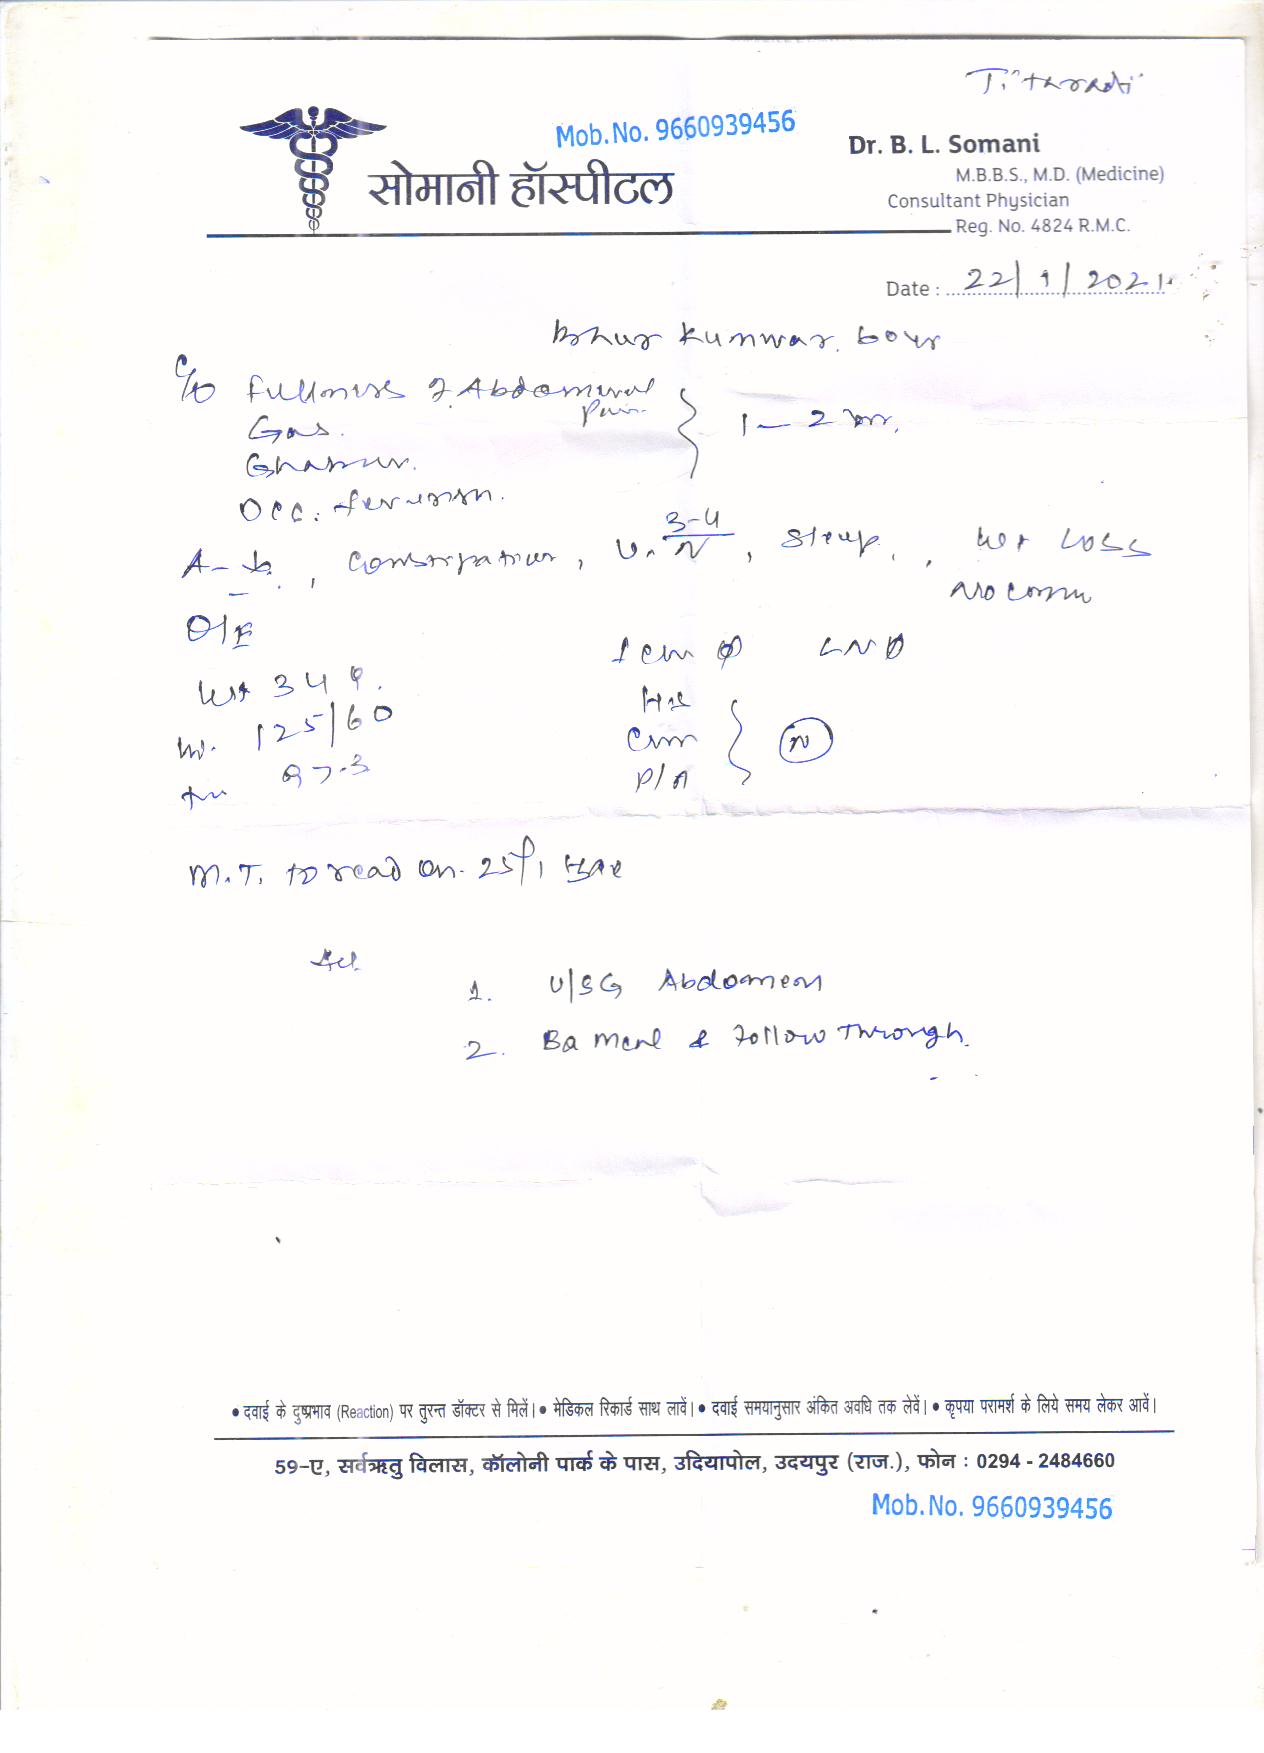 Mob.No. 9660939456
Dr. B. L. Somani
सोमानी हॉस्पीटल
M.B.B.S., M.D. (Medicine)
Consultant Physician
Reg. No. 4824 R.M.C.
Date : 22/1/2021
Kunwar. 60 yr
C/o Fullness Abdominal
Pain
Gas.
1-2
Occ.
Constipation, 3-4/N, Sleep, Wt Loss
No comm
O/E
1 cm LND
Wt 34
125/60
P/A
N
97.3
M.T. to read on 25/1
1. U/SG Abdomen
2. Ba Meal & Follow Through.
• दवाई के दुष्प्रभाव (Reaction) पर तुरन्त डॉक्टर से मिलें। • मेडिकल रिकार्ड साथ लावें। • दवाई समयानुसार अंकित अवधि तक लेवें। • कृपया परामर्श के लिये समय लेकर आवें।
59-ए, सर्वऋतु विलास, कॉलोनी पार्क के पास, उदियापोल, उदयपुर (राज.), फोन : 0294 - 2484660
Mob.No. 9660939456